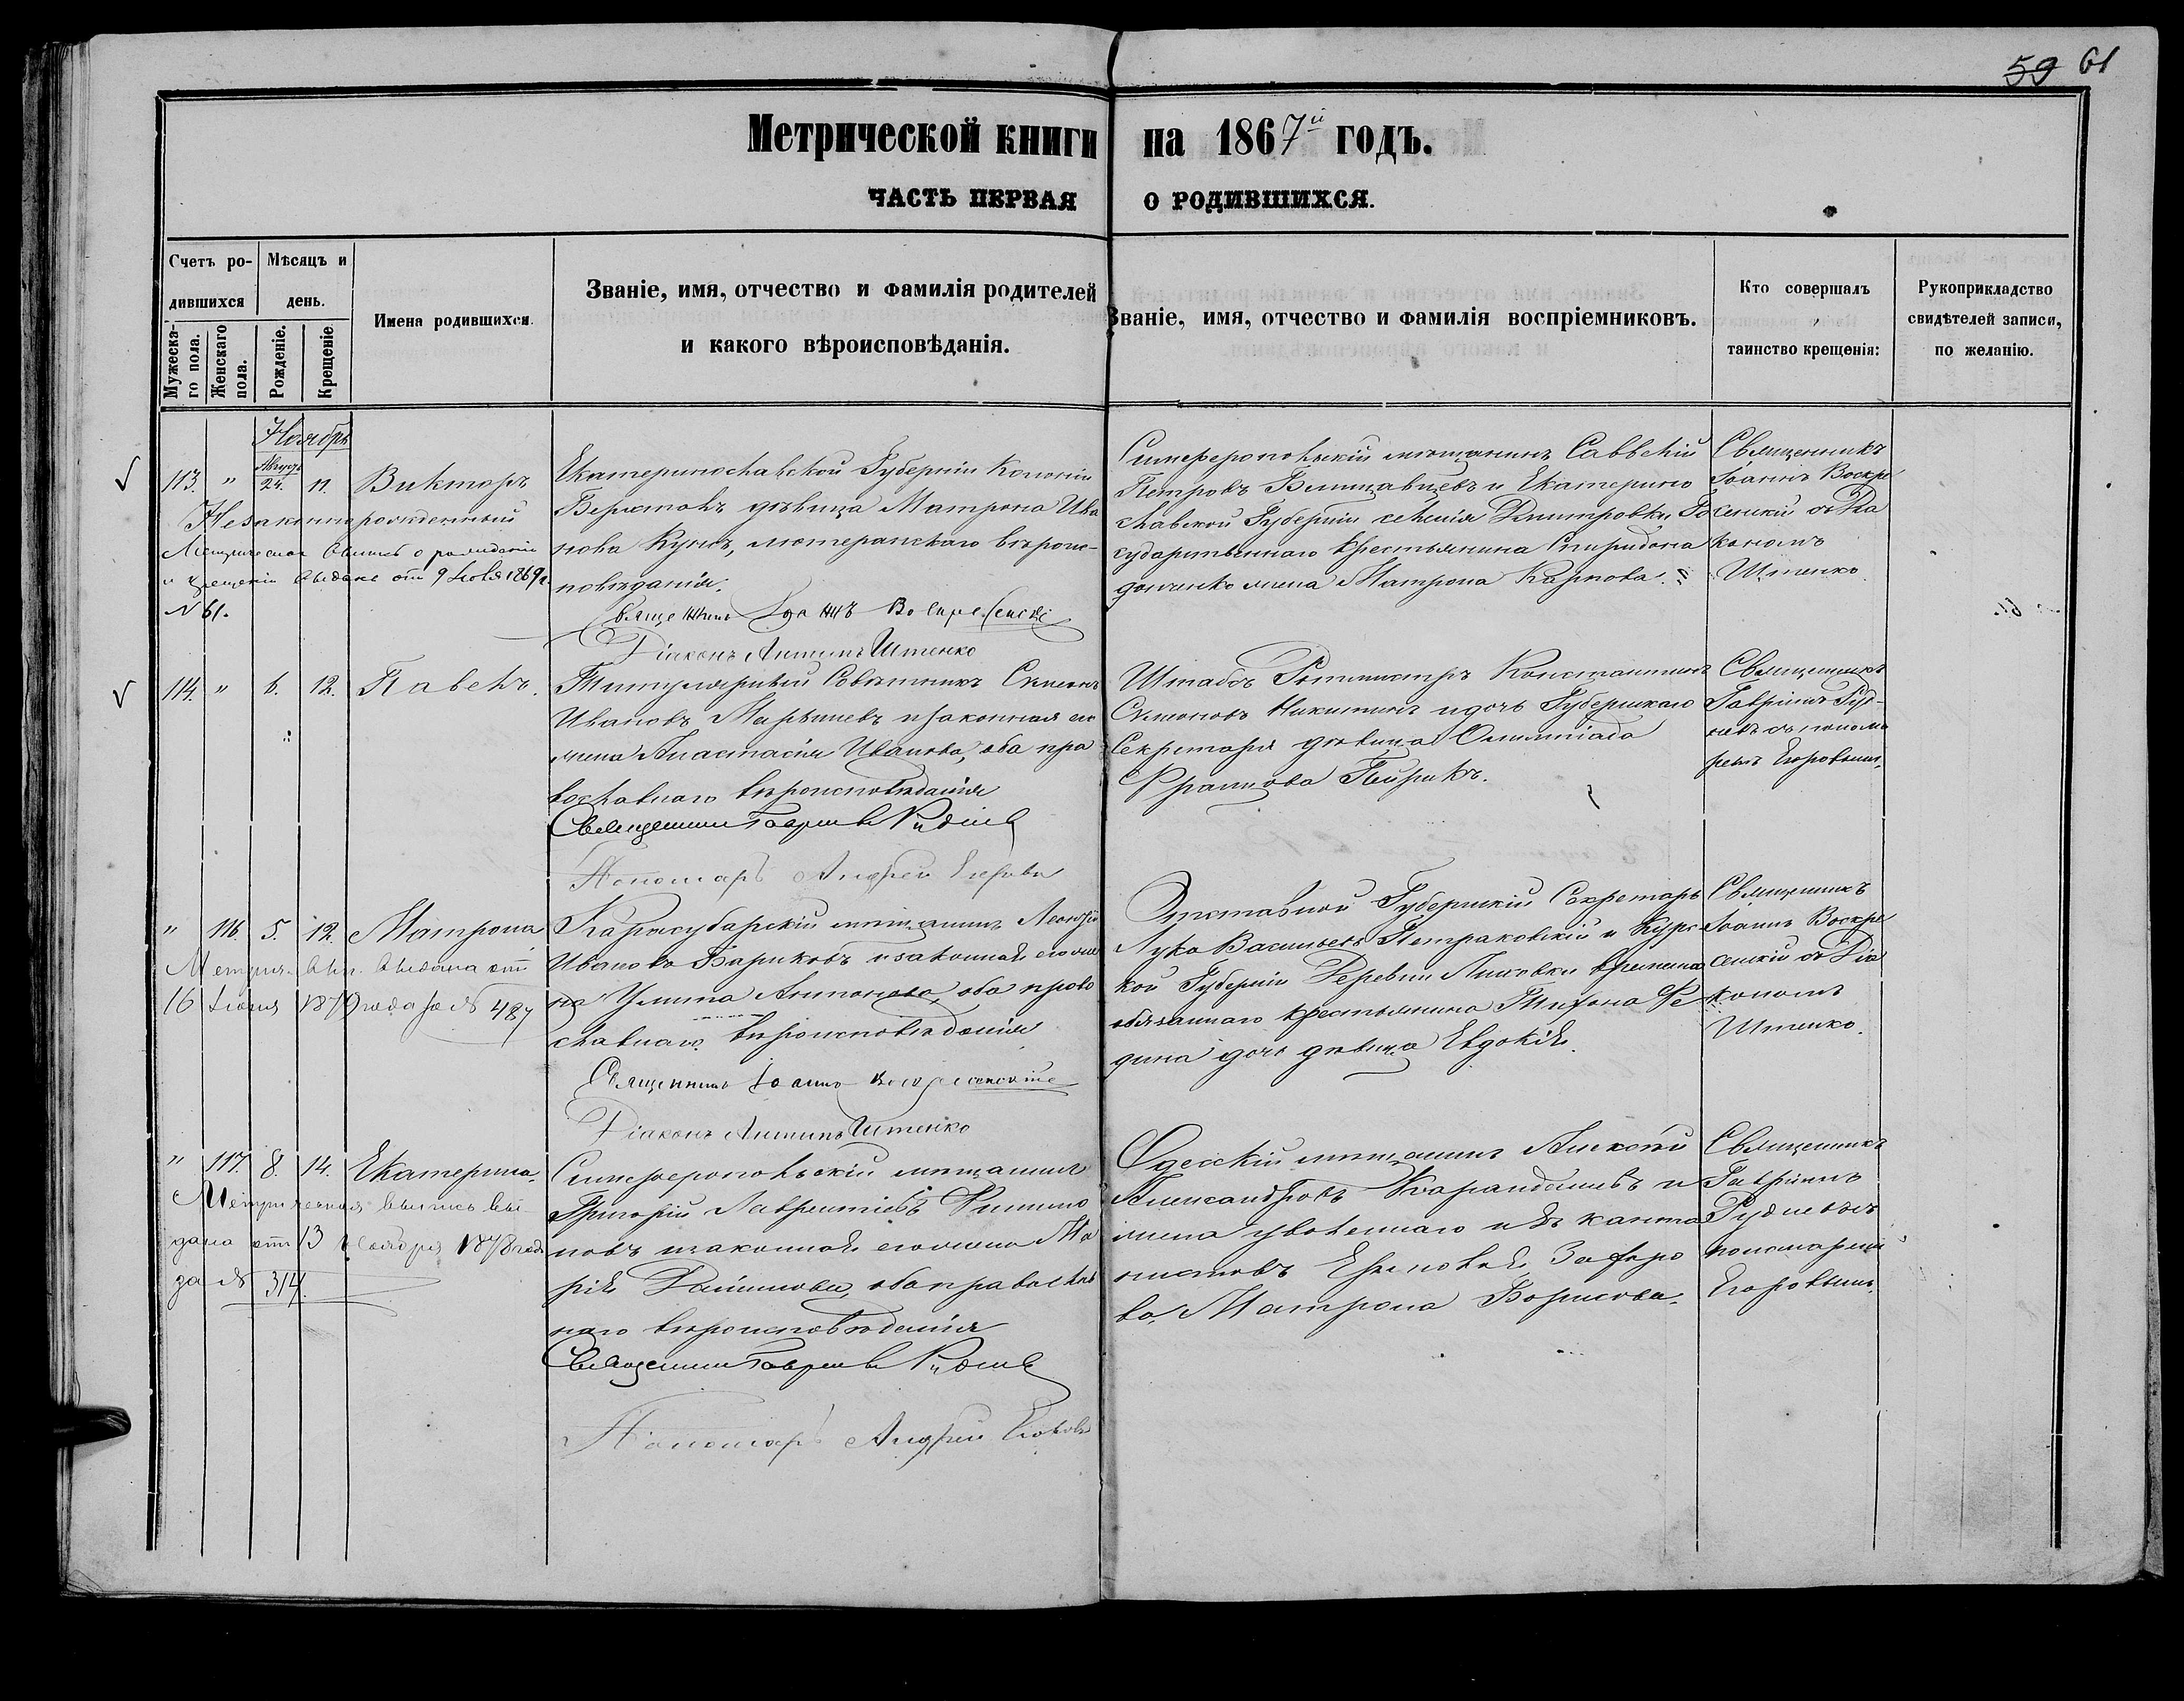 59 61
Метрической книги на 1867й годъ.
ЧАСТЬ ПЕРВАЯ О РОДИВШИХСЯ.
Счетъ ро-
дившихся
Мужеска-
го пола.
Женскаго
пола.
Мѣсяцъ и
день.
Рожденіе.
Крещеніе
Имена родившихся.
Званіе, имя, отчество и фамилія родителей
и какого вѣроисповѣданія.
Званіе, имя, отчество и фамилія воспріемниковъ.
Кто совершалъ
таинство крещенія:
Рукоприкладство
свидѣтелей записи,
по желанію.
Ноябрь
113. " Августъ 24. 11. Викторъ
Незаконнорожденный
Метрическое о рожденіи
и крещеніи выдано отъ 9 1869 г.
№ 61.
Екатеринославской Губерніи Колоніи
дѣвица Матрона Ива
нова Кунъ, лютеранскаго вѣроис-
повѣданія.
Священникъ Іоаннъ Воскресенскій
Діаконъ Антипъ Штенко
Симферопольскій мѣщанинъ Савелій
Петровъ и Екатерино
славской Губерніи селенія Дмитровки Го
сударственнаго крестьянина Спиридона
жена Матрона Карпова.
Священникъ
Іоаннъ Воскре
сенскій съ Діа
кономъ
Штенко
114. " 6. 12. Павелъ.
Титулярный Совѣтникъ Симеонъ
Ивановъ и законная его
жена Анастасія Иванова, оба пра
вославнаго вѣроисповѣданія
Священникъ Гавріилъ Рудневъ
Пономарь Андрей Егоровъ
Штабсъ Ротмистръ Константинъ
Симеоновъ Никитинъ и дочь Губернскаго
Секретаря дѣвица Олимпіада
Францова
Священникъ
Гавріилъ Руд-
невъ съ понома
ремъ Егоровымъ.
" 116. 5. 12. Матрона
Метрич. вып. выдана отъ
16 Іюня 1879 года за № 487
Карасубазарскій мѣщанинъ
Ивановъ Бариковъ и законная его же
на Улита Антонова, оба право
славнаго вѣроисповѣданія
Священникъ Іоаннъ Воскресенскій
Діаконъ Антипъ Штенко
Отставной Губернскій Секретарь
Лука Васильевъ Петраковскій и Курс
кой Губерніи Деревни временно
обязаннаго крестьянина Тихона Фе
дина дочь дѣвица Евдокія.
Священникъ
Іоаннъ Воскре
сенскій съ Діа
кономъ
Штенко.
" 117. 8. 14. Екатерина.
Метрическая выпись вы
дана отъ 13 Ноября 1878 года
за № 314.
Симферопольскій мѣщанинъ
Григорій Лаврентіевъ Филимо
новъ и законная его жена Ма
рія Данилова, оба православ
наго вѣроисповѣданія
Священникъ Гавріилъ Рудневъ
Пономарь Андрей Егоровъ
Одесскій мѣщанинъ Алексѣй
Александровъ Карандашевъ и
жена уволеннаго изъ канто
нистовъ
ва, Матрона Борисова.
Священникъ
Гавріилъ
Рудневъ съ
пономаремъ
Егоровымъ.